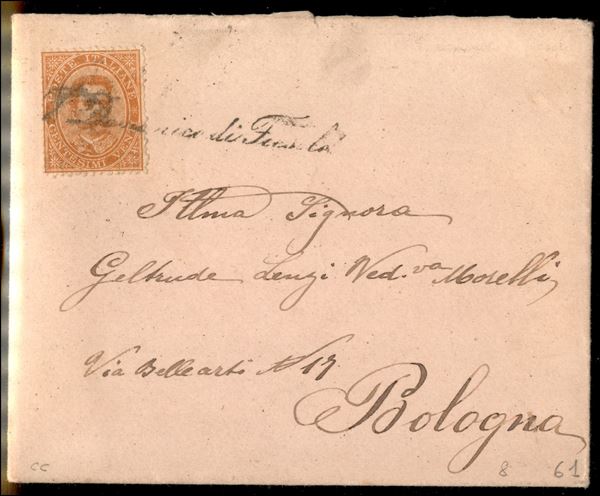 POSTE ITALIANE
CENTESIMI VENTI
di
Illma Signora
Geltrude Lenzi Ved.va Morelli
Via Belle arti N 17
Bologna
cc 8 61